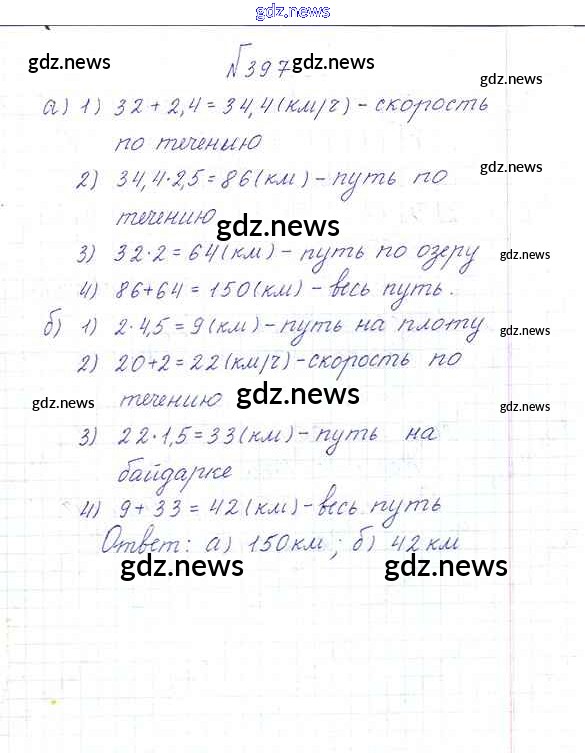 gdz.news
№397
gdz.news gdz.news
gdz.news
а) 1) 32 + 2,4 = 34,4 (км/ч) - скорость
по течению
gdz.news
2) 34,4·2,5 = 86 (км) - путь по
течению
gdz.news
3) 32·2 = 64 (км) - путь по озеру
gdz.news
4) 86+64 = 150 (км) - весь путь.
б) 1) 2·4,5 = 9 (км) - путь на плоту
gdz.news
2) 20+2 = 22 (км/ч) - скорость по
течению
gdz.news gdz.news gdz.news
3) 22·1,5 = 33 (км) - путь на
байдарке
4) 9 + 33 = 42 (км) - весь путь
Ответ: а) 150 км; б) 42 км
gdz.news gdz.news